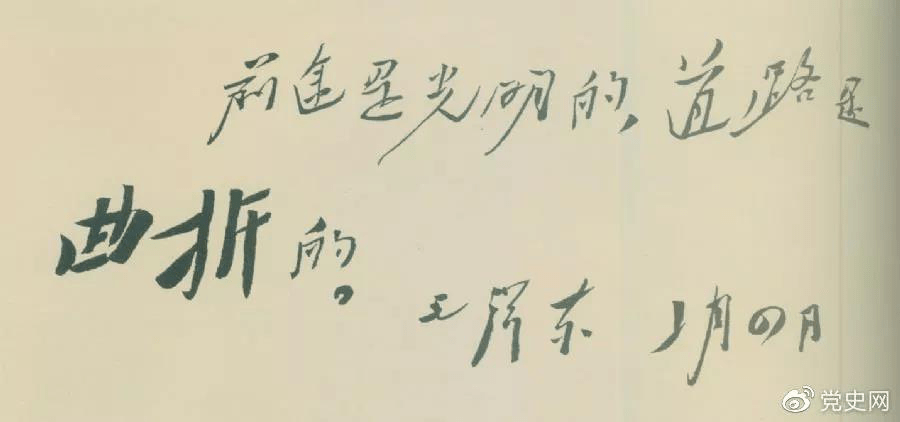 前途是光明的,道路是
曲折的。
毛泽东 1月4日
党史网